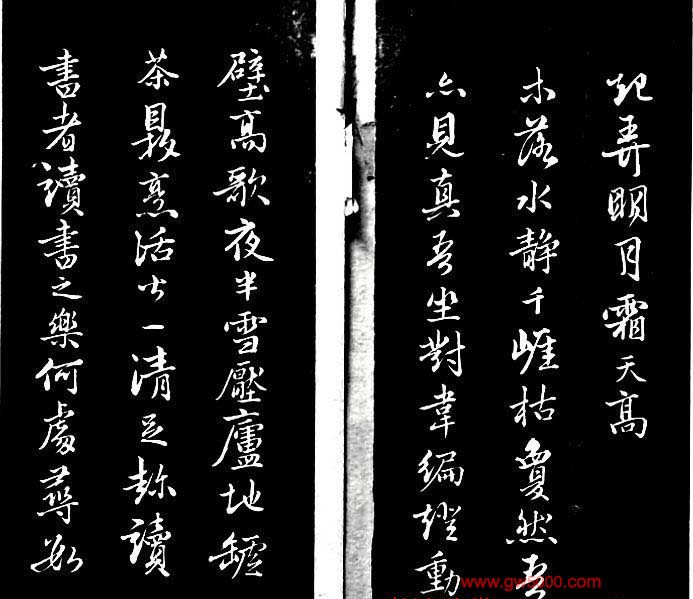 起弄明月霜天高
木落水静千崕枯夐然吾
亦見真吾坐對韋編燈動
壁高歌夜半雪壓廬地罏
茶鼎烹活火一清足称讀
書者讀書之樂何處尋數
www.gw8000.com